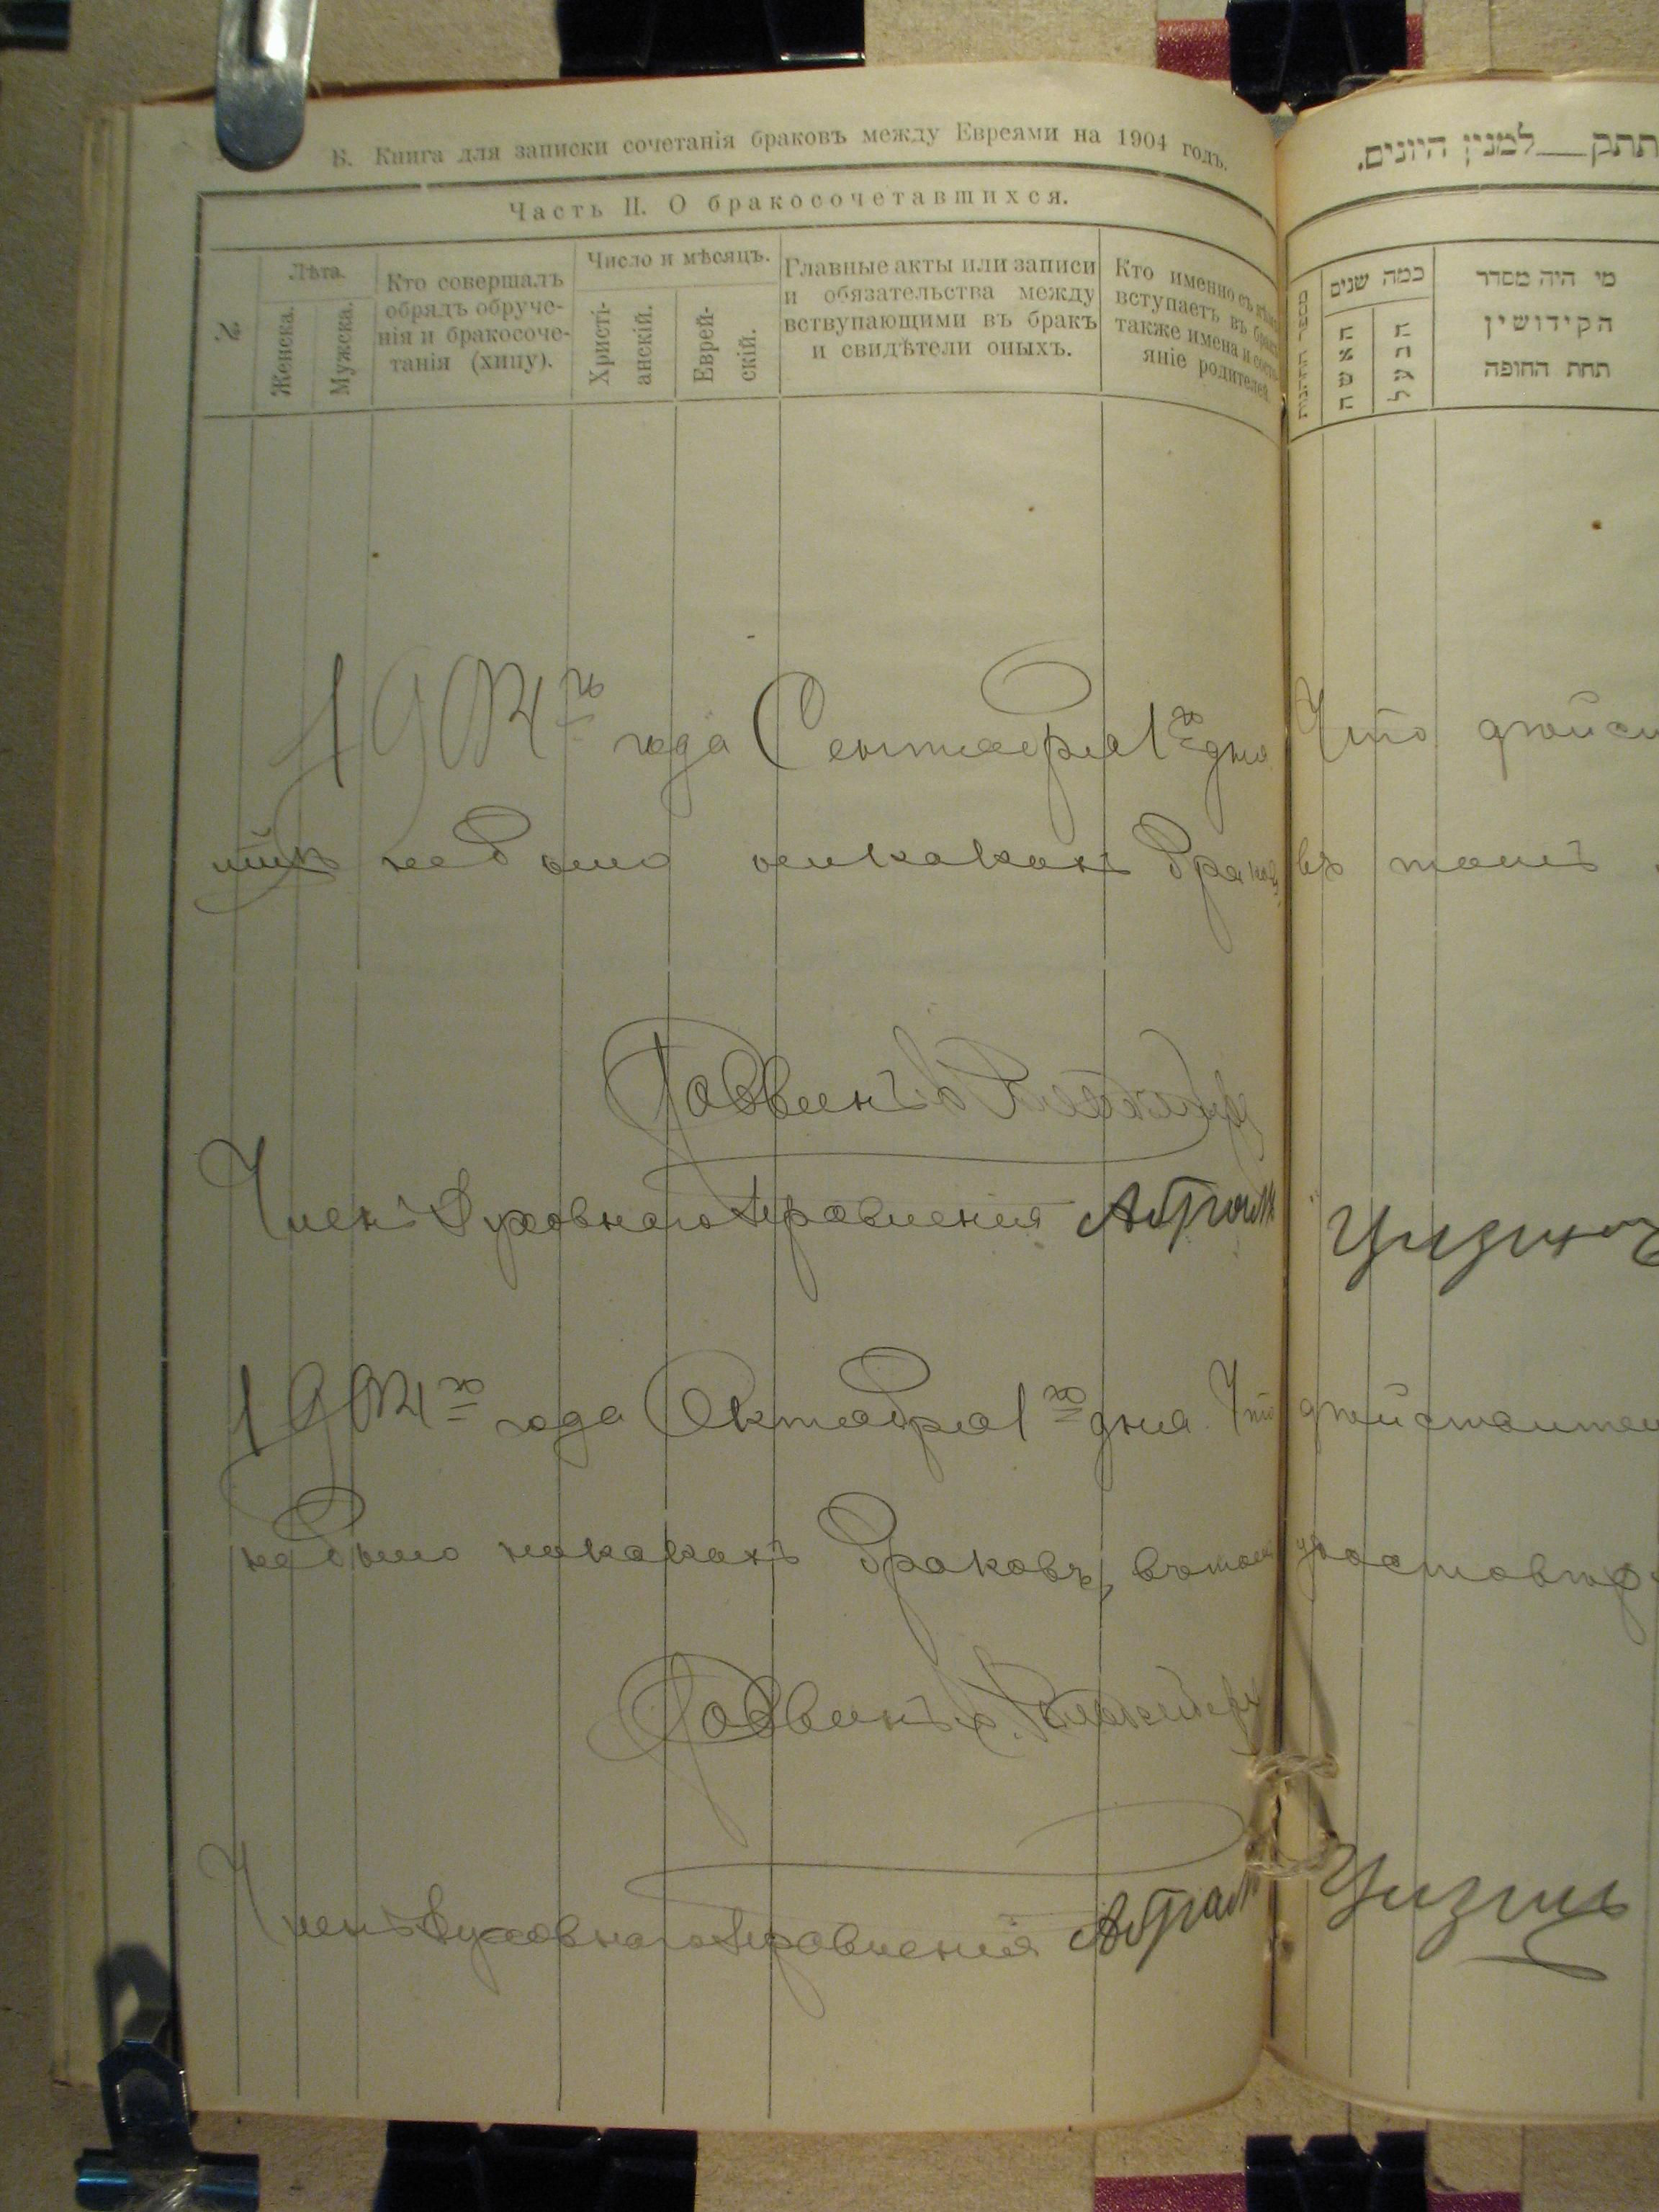 Б. Книга для записки сочетанія браковъ между Евреями на 1904 годъ.
Часть II. О бракосочетавшихся.
№
Лѣта.
Женска.
Мужска.
Кто совершалъ
обрядъ обруче-
нія и бракосоче-
танія (хипу).
Число и мѣсяцъ.
Христі-
анскій.
Еврей-
скій.
Главные акты или записи
и обязательства между
вствупающими въ бракъ
и свидѣтели оныхъ.
Кто именно съ кѣмъ
вступаетъ въ бракъ
также имена и состо-
яніе родителей.
תתק למנין היונים.
כמה שנים
האשה
הבעל
מי היה מסדר
הקידושין
תחת החופה
1904го года Сентября 1го дня Что дѣйст
не было никакихъ браковъ въ томъ
Раввинъ
Членъ Духовнаго Правленія Абрамъ
1904го года Октября 1го дня. Что дѣйствител
не было никакихъ браковъ, въ томъ удостовѣр
Раввинъ
Членъ Духовнаго Правленія Абрамъ